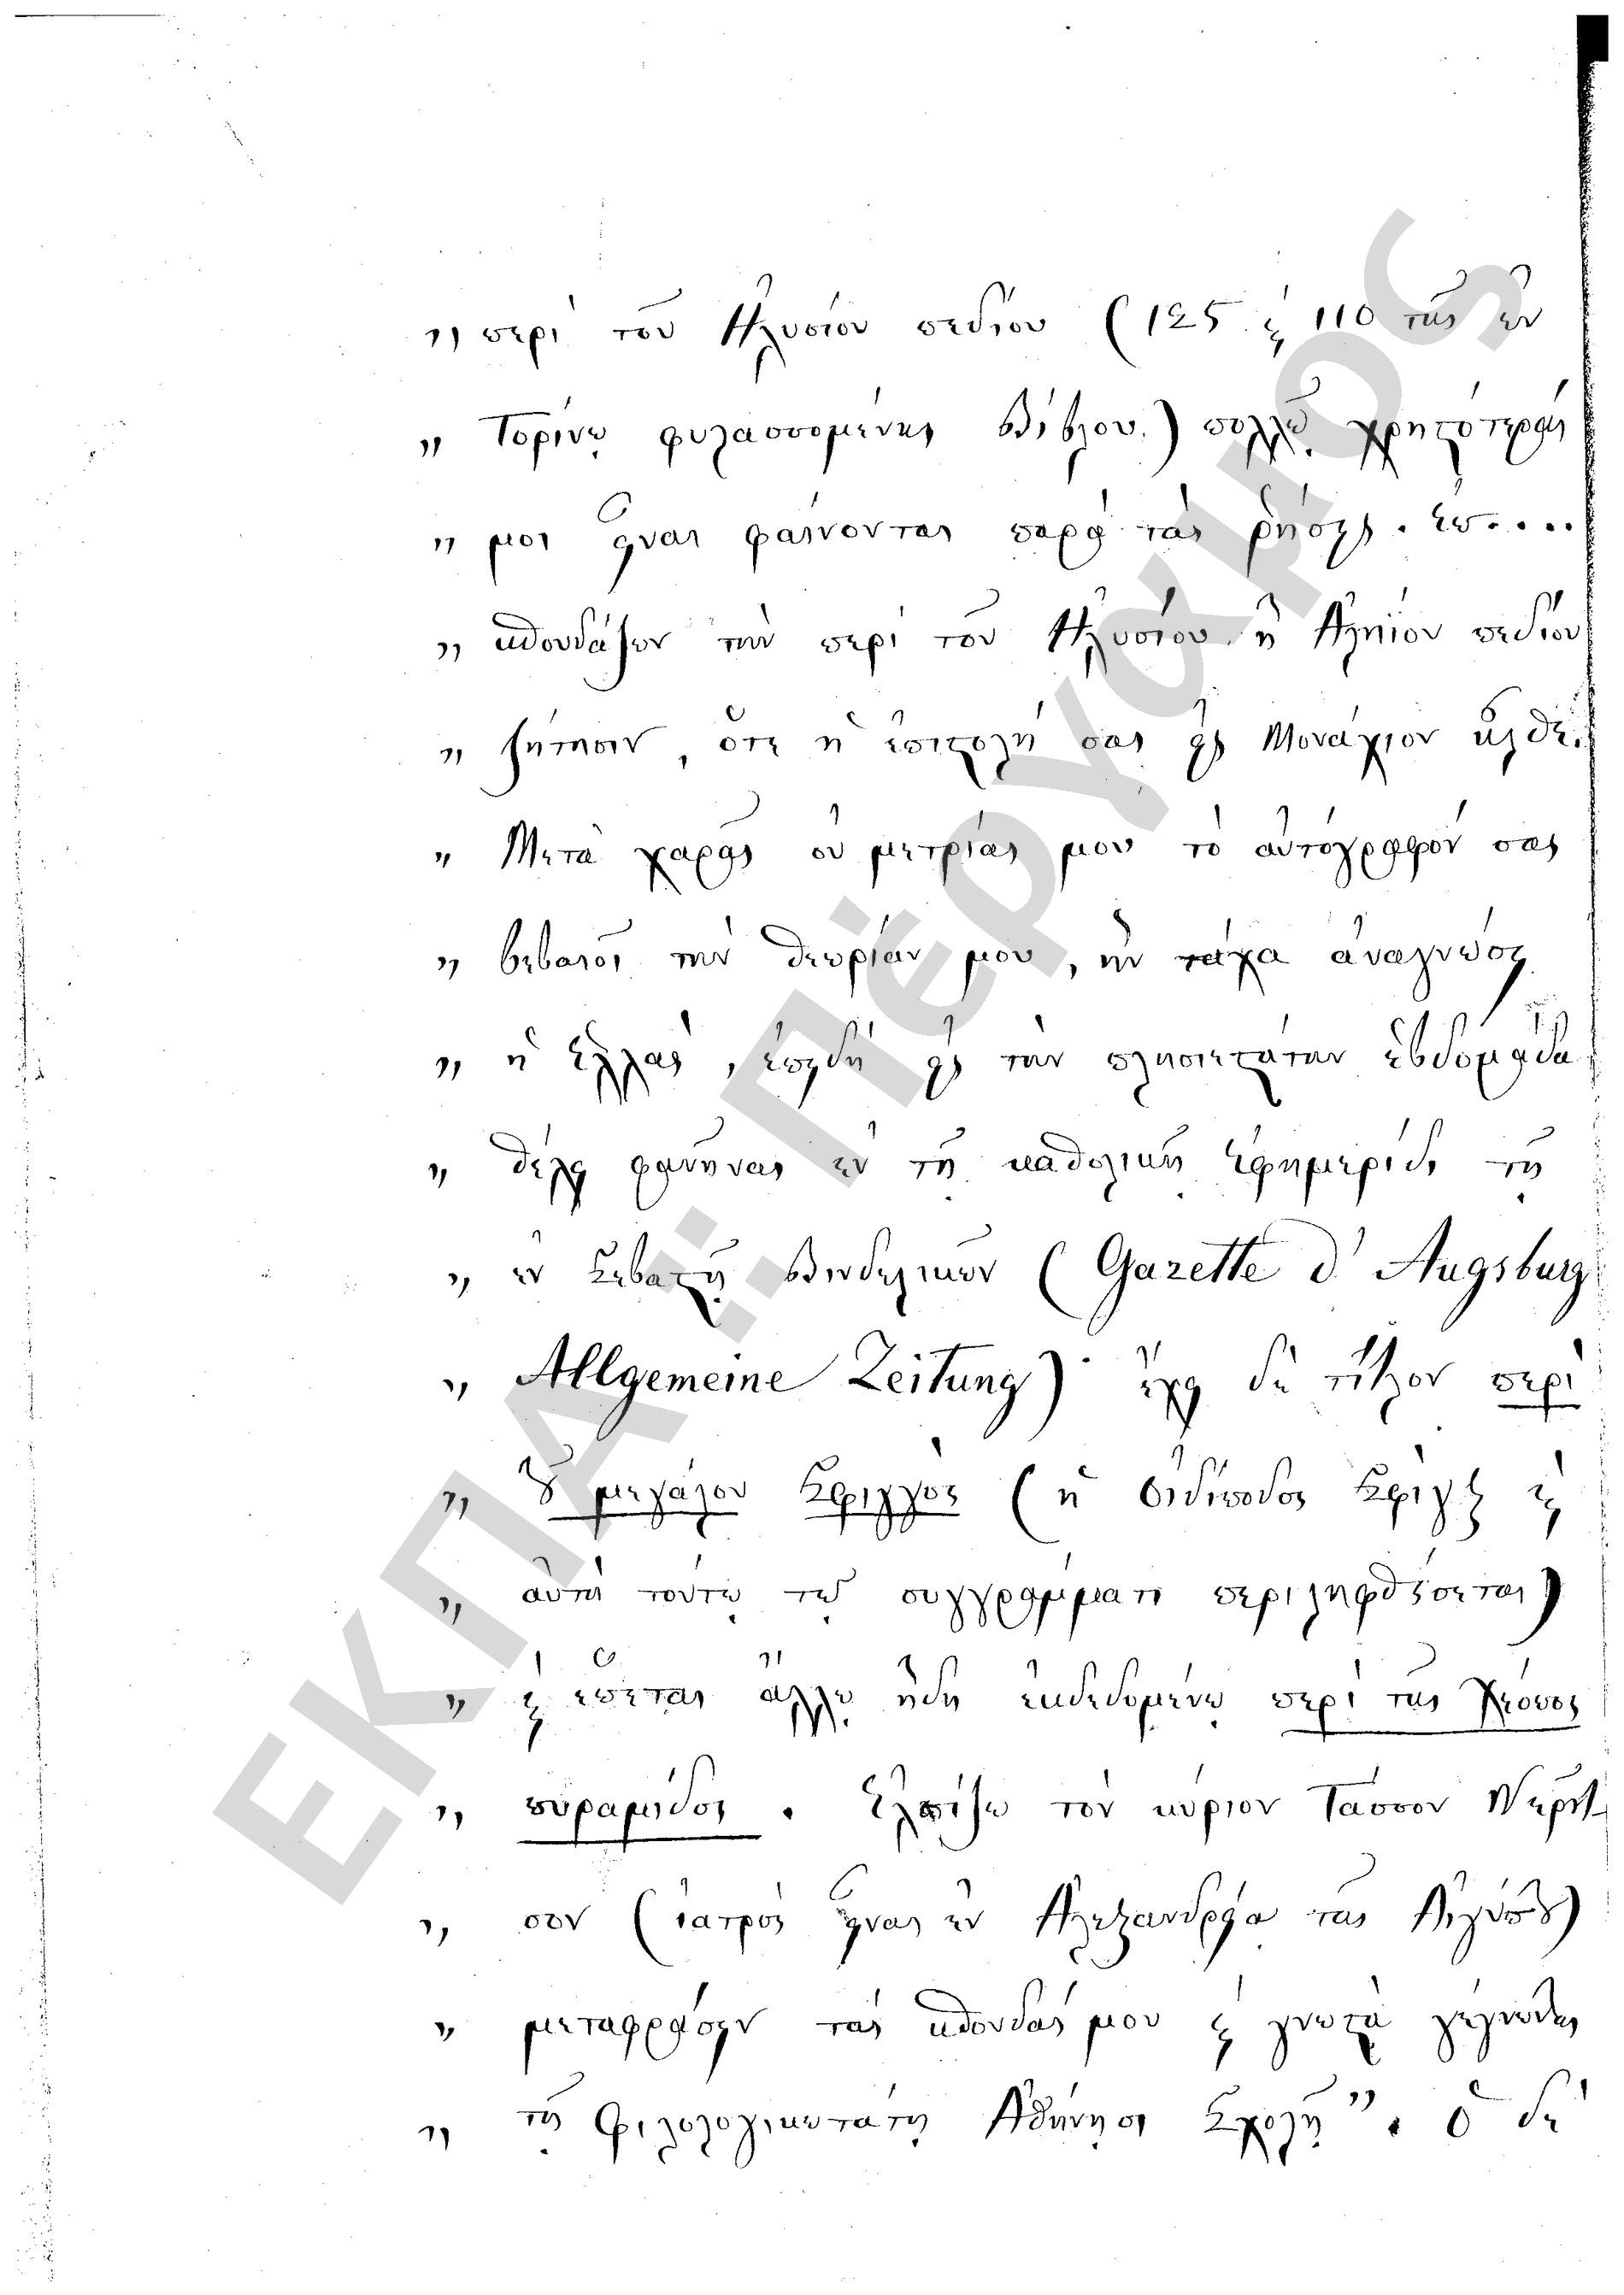 „ περὶ τοῦ Ἠλυσίου πεδίου (125 ϗ 110 τῆς ἐν
„ Τορίνῳ φυλασσομένης Βίβλου.) πολλῷ χρηστότεραί
„ μοι εἶναι φαίνονται παρὰ τὰς ῥήσεις. ἐπ....
„ σπουδάζον τὴν περὶ τοῦ Ἠλυσίου ἢ Ἀληίου πεδίου
„ ζήτησιν, ὅτε ἡ ἐπιστολή σας εἰς Μονάχιον ἦλθε.
„ Μετὰ χαρᾶς οὐ μετρίας μου τὸ αὐτόγραφόν σας
„ βεβαιοῖ τὴν θεωρίαν μου, ἣν τάχα ἀναγνώσει
„ ἡ Ἑλλάς, ἐπειδὴ εἰς τὴν πλησιεστάτην ἑβδομάδα
„ θέλει φανῆναι ἐν τῇ καθολικῇ Ἐφημερίδι τῇ
„ ἐν Σεβαστῇ Βινδελικῶν (Gazette d' Augsburg
„ Allgemeine Zeitung) ἔχει δὲ τίτλον περὶ
„ τοῦ μεγάλου Σφιγγός (ἡ Οἰδίποδος Σφίγξ ϗ
„ αὐτὴ τούτῳ τῷ συγγράμματι περιληφθήσεται)
„ ϗ ἕπεται ἄλλῳ ἤδη ἐκδεδομένῳ περὶ τῆς Χέοπος
„ πυραμίδος. Ἐλπίζω τὸν κύριον Τάσσον Νερούτ
„ σον (ἰατρὸς εἶναι ἐν Ἀλεξανδρείᾳ τῆς Αἰγύπτου)
„ μεταφράσειν τὰς σπουδάς μου ϗ γνωστὰ γεγενῆσθαι
„ τῇ φιλολογικωτάτῃ Ἀθήνησι Σχολῇ”. Ὁ δὲ